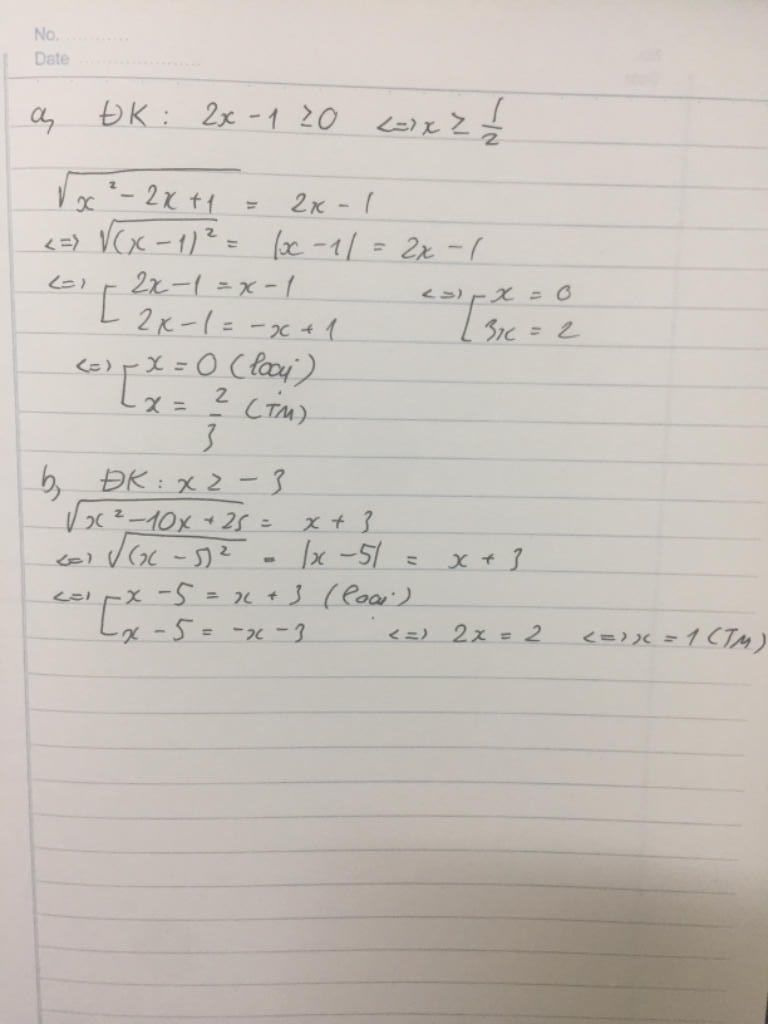 No. ............
Date .....................
a, ĐK : 2x - 1 ≥ 0 <=> x ≥ 1/2
√(x² - 2x + 1) = 2x - 1
<=> √((x - 1)²) = |x - 1| = 2x - 1
<=> [ 2x - 1 = x - 1 <=> [ x = 0
2x - 1 = -x + 1 3x = 2
<=> [ x = 0 (loại)
x = 2/3 (TM)
b, ĐK : x ≥ - 3
√(x² - 10x + 25) = x + 3
<=> √((x - 5)²) = |x - 5| = x + 3
<=> [ x - 5 = x + 3 (loại)
x - 5 = -x - 3 <=> 2x = 2 <=> x = 1 (TM)